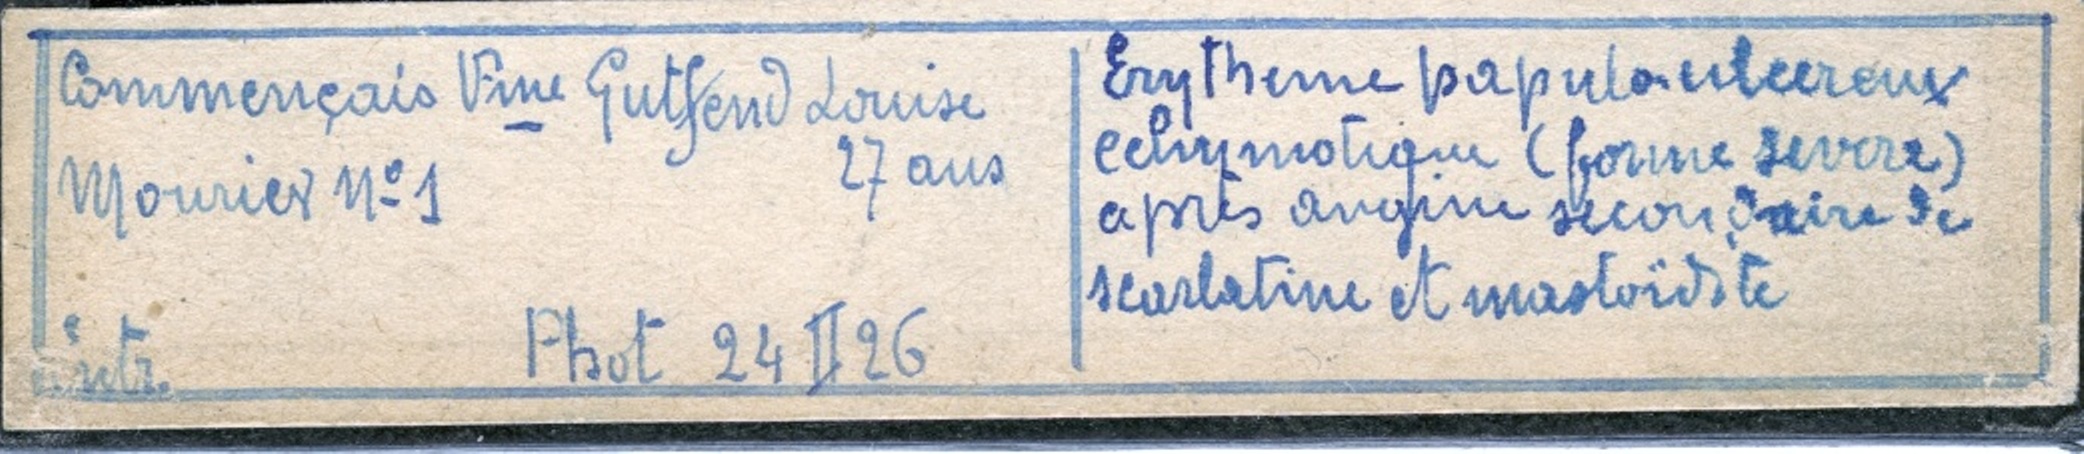 Commençais Vme Gutfend Louise
27 ans
Mourier Nº 1
intr.
Phot 24 II 26
Erytheme papulo-ulcereux
echymotique (forme severe)
après angine secondaire de
scarlatine et mastoïdite